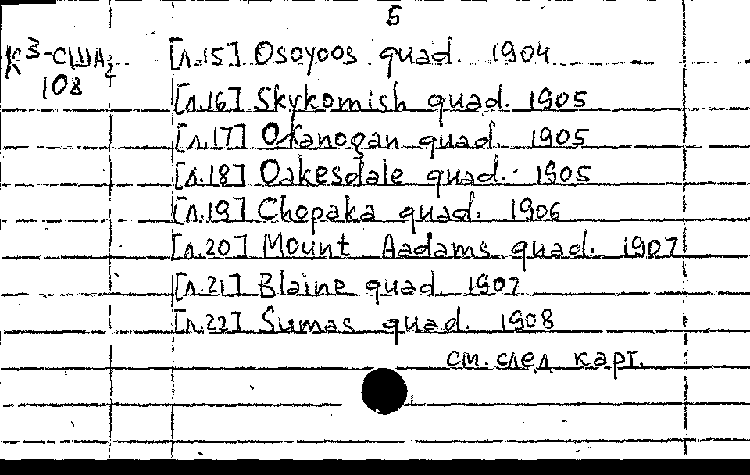 5
К3-США2 [л.15] Osoyoos quad. 1904
108
[л.16] Skykomish quad. 1905
[л.17] Okanogan quad. 1905
[л.18] Oakesdale quad. 1905
[л.19] Chopaka quad. 1906
[л.20] Mount Aadams quad. 1907
[л.21] Blaine quad. 1907
[л.22] Sumas quad. 1908
см. след карт.